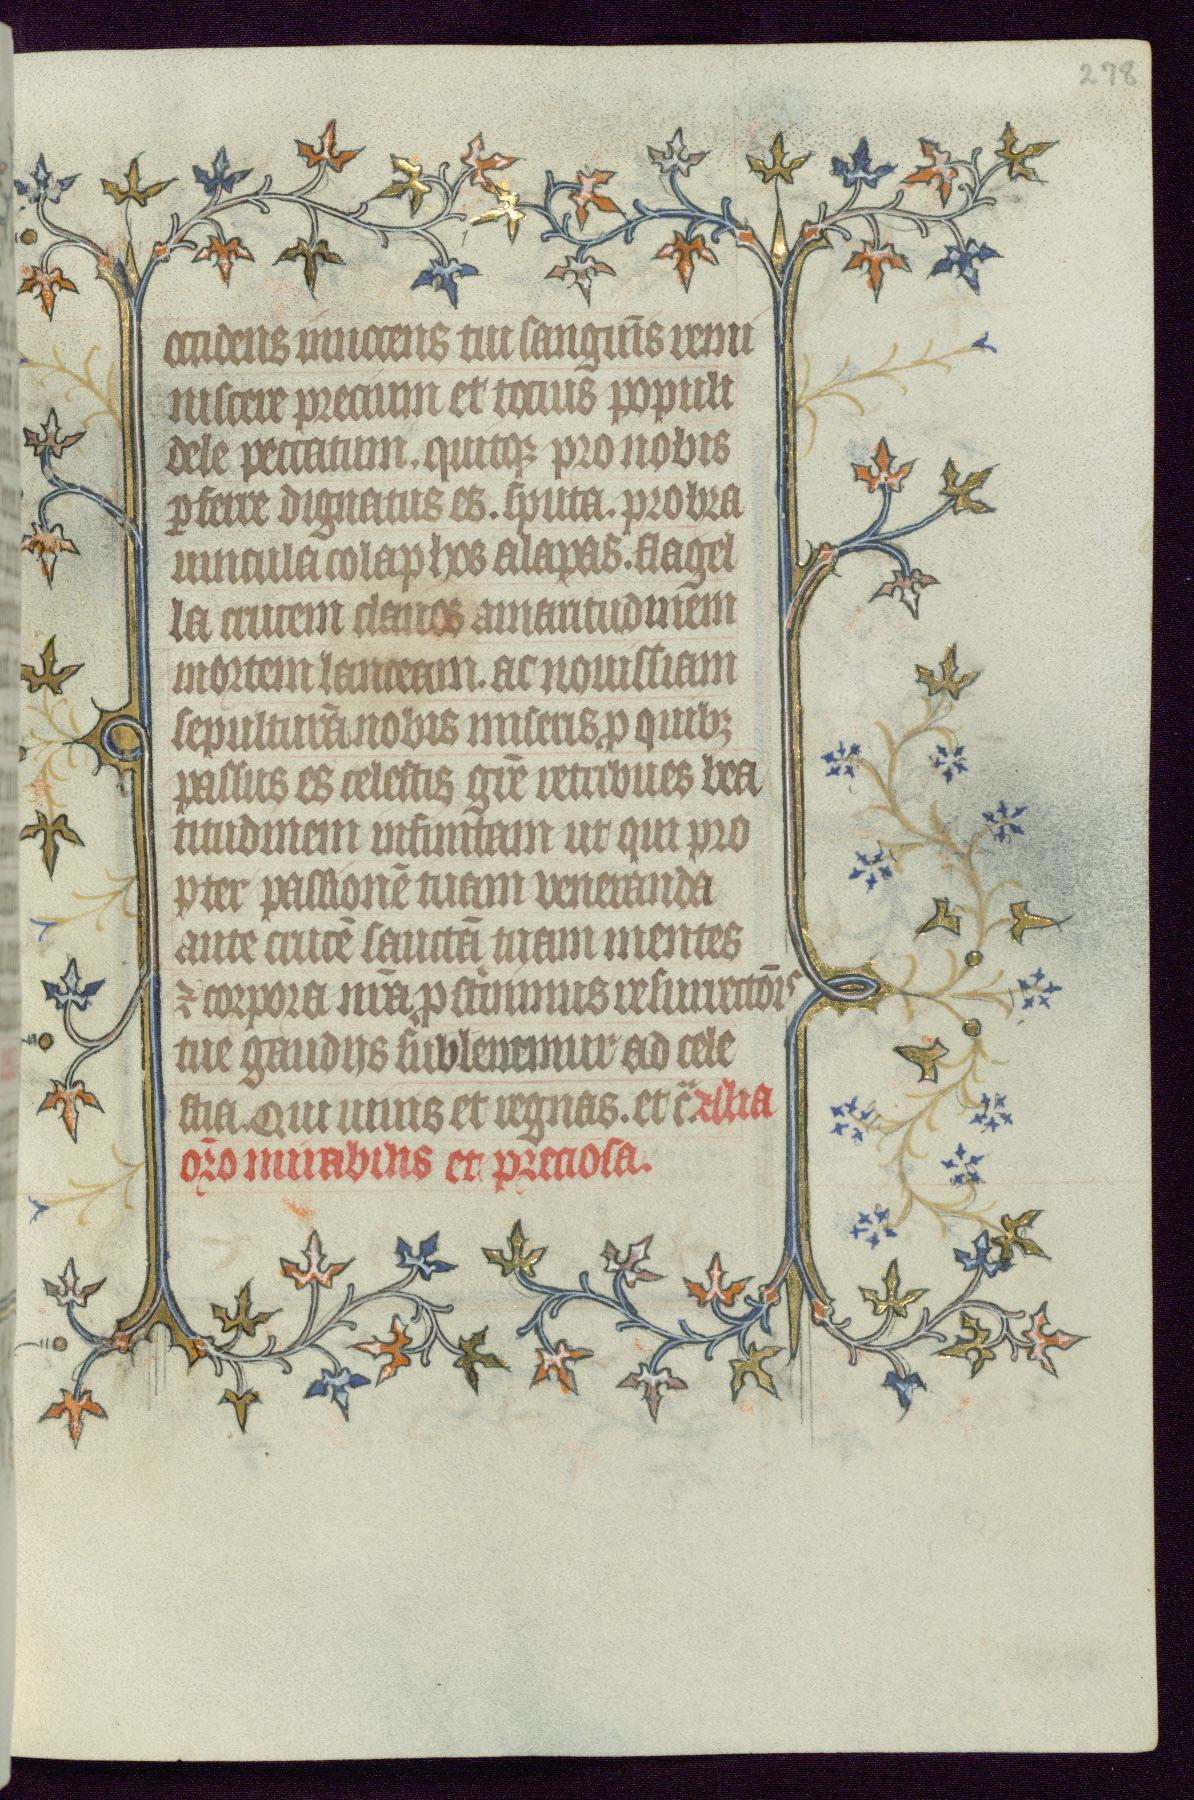 278
occidens innocens tui sanguīs remi
niscere precium et tocius populi
dele peccatum. quitqꝫ pro nobis
ꝑferre dignatus es. sputa. probra
uincula colaphos alapas. flagel
la crucem clauos amaritudinēm
mortem lanceam. ac nouissīam
sepulturā nobis miseris ꝑ quibꝫ
passus es celestis grē retribues bea
titudinem infinitam ut qui pro
pter passionē tuam veneranda
ante crucē sanctā tuam mentes
⁊ corpora nrā ꝓstinimus resurrectōis
tue gaudijs subleuemur ad cele
stia. Qui uiuis et regnas. et c̄. Alia
or̄o mirabilis et preciosa.